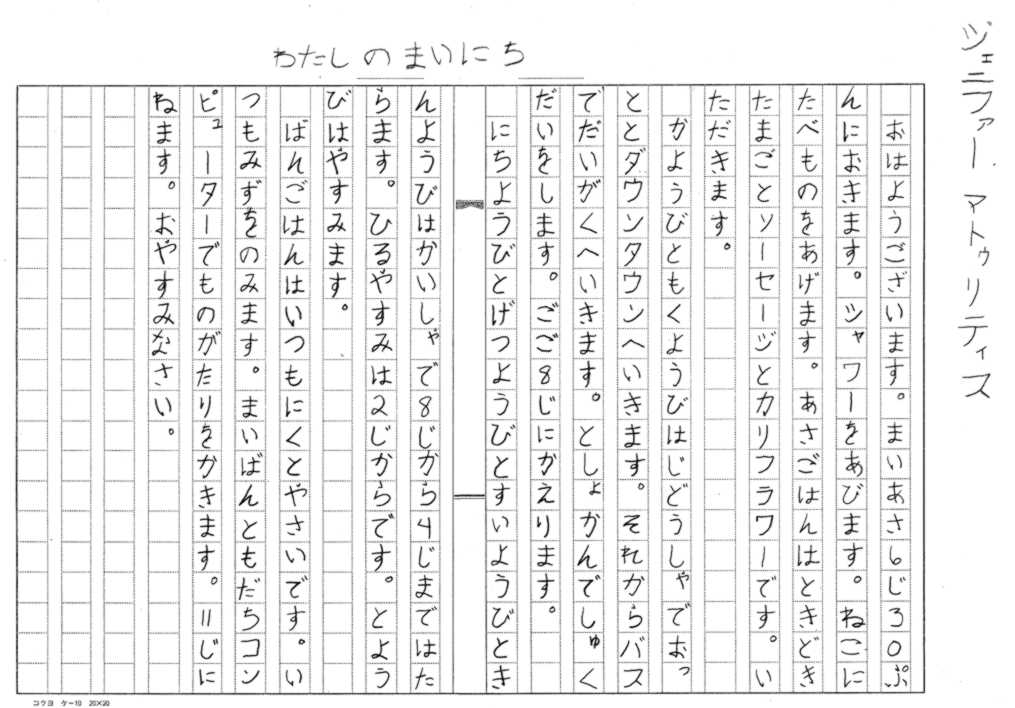 わたしのまいにち
ジェニファー マトゥリティス
おはようございます。まいあさ6じ30ぷ
んにおきます。シャワーをあびます。ねこに
たべものをあげます。あさごはんはときどき
たまごとソーセージとカリフラワーです。い
ただきます。
かようびともくようびはじどうしゃでおっ
ととダウンタウンへいきます。それからバス
でだいがくへいきます。としょかんでしゅく
だいをします。ごご8じにかえります。
にちようびとげつようびとすいようびとき
んようびはかいしゃで8じから4じまではた
らます。ひるやすみは2じからです。とよう
びはやすみます。
ばんごはんはいつもにくとやさいです。い
つもみずをのみます。まいばんともだちコン
ピューターでものがたりをかきます。11じに
ねます。おやすみなさい。
コクヨ ケー10 20×20